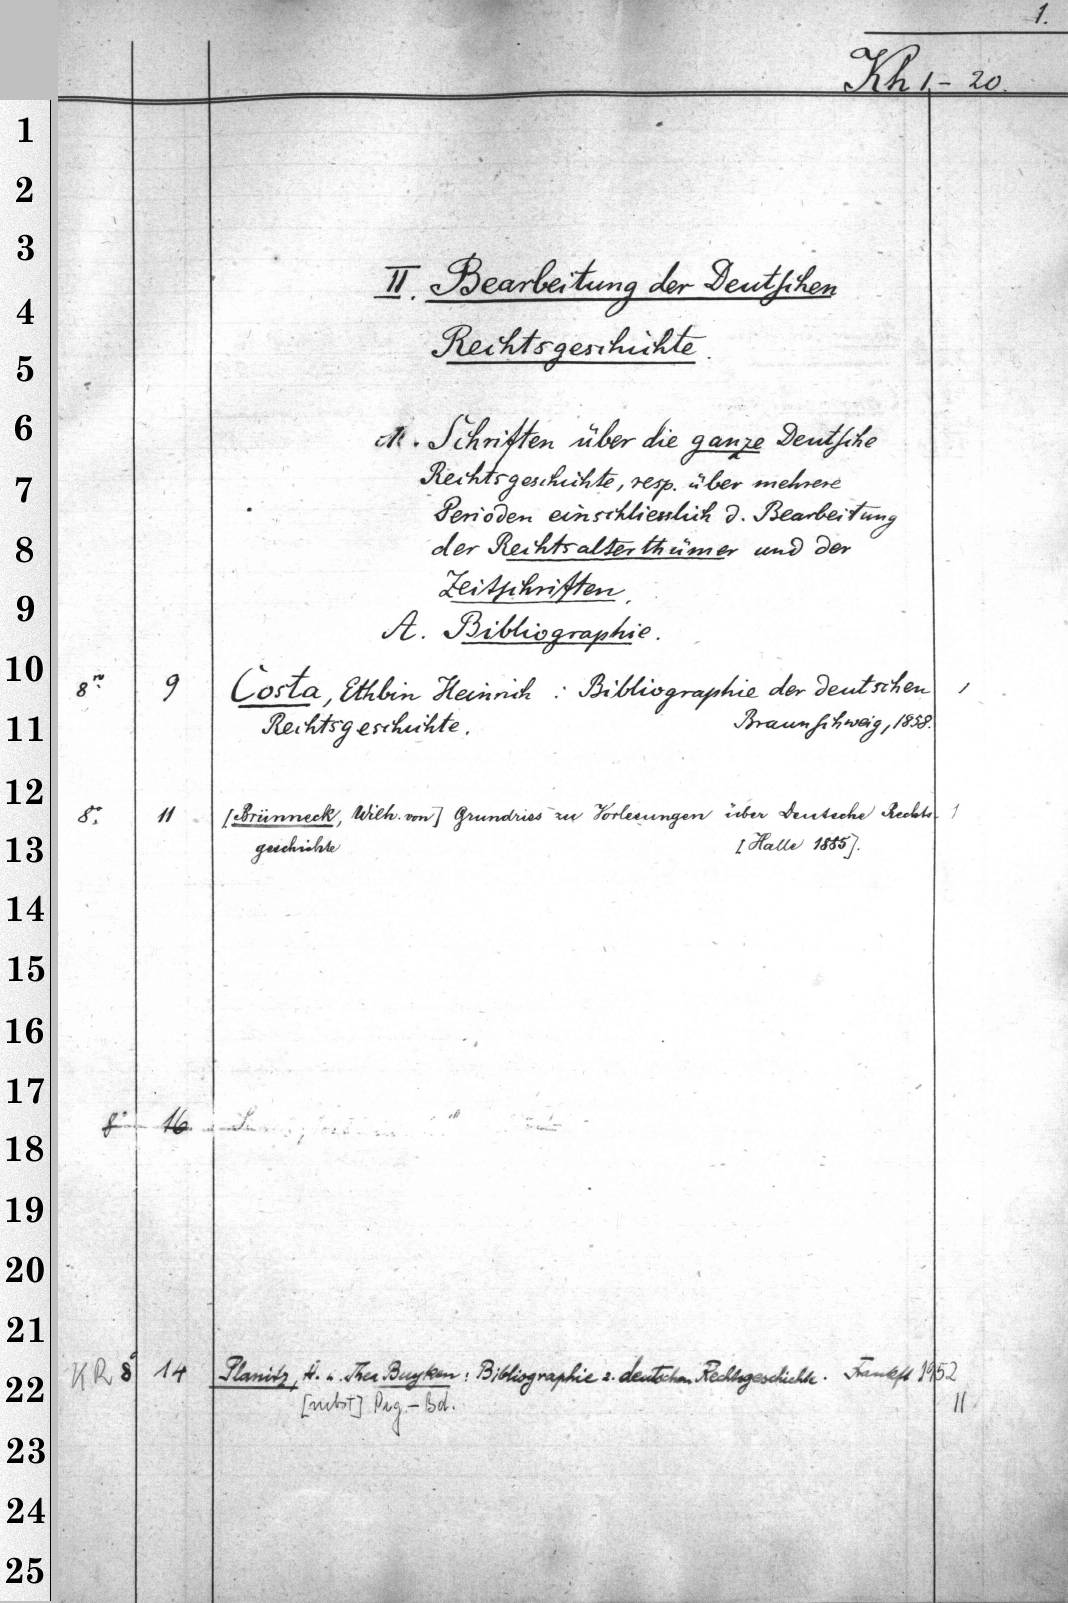 1.
Kh 1.- 20.
1
2
3
II. Bearbeitung der Deutschen
4
Rechtsgeschichte.
5
6
Schriften über die ganze Deutsche
7
Rechtsgeschichte, resp. über mehrere
Perioden einschliesslich d. Bearbeitung
8
der Rechtsalterthümer und der
9
Zeitschriften.
A. Bibliographie.
10
8° 9 Costa, Ethbin Heinrich : Bibliographie der deutschen 1
11
Rechtsgeschichte. Braunschweig, 1858.
12
8° 11 [Brünneck, Wilh. von] Grundriss zu Vorlesungen über Deutsche Rechts- 1
13
geschichte [Halle 1885].
14
15
16
17
8° 16
18
19
20
21
22
KR 8° 14 Planitz, H. u. Thea Buyken: Bibliographie z. deutschen Rechtsgeschichte. Frankft 1952
[nebst] Reg.-Bd. II
23
24
25